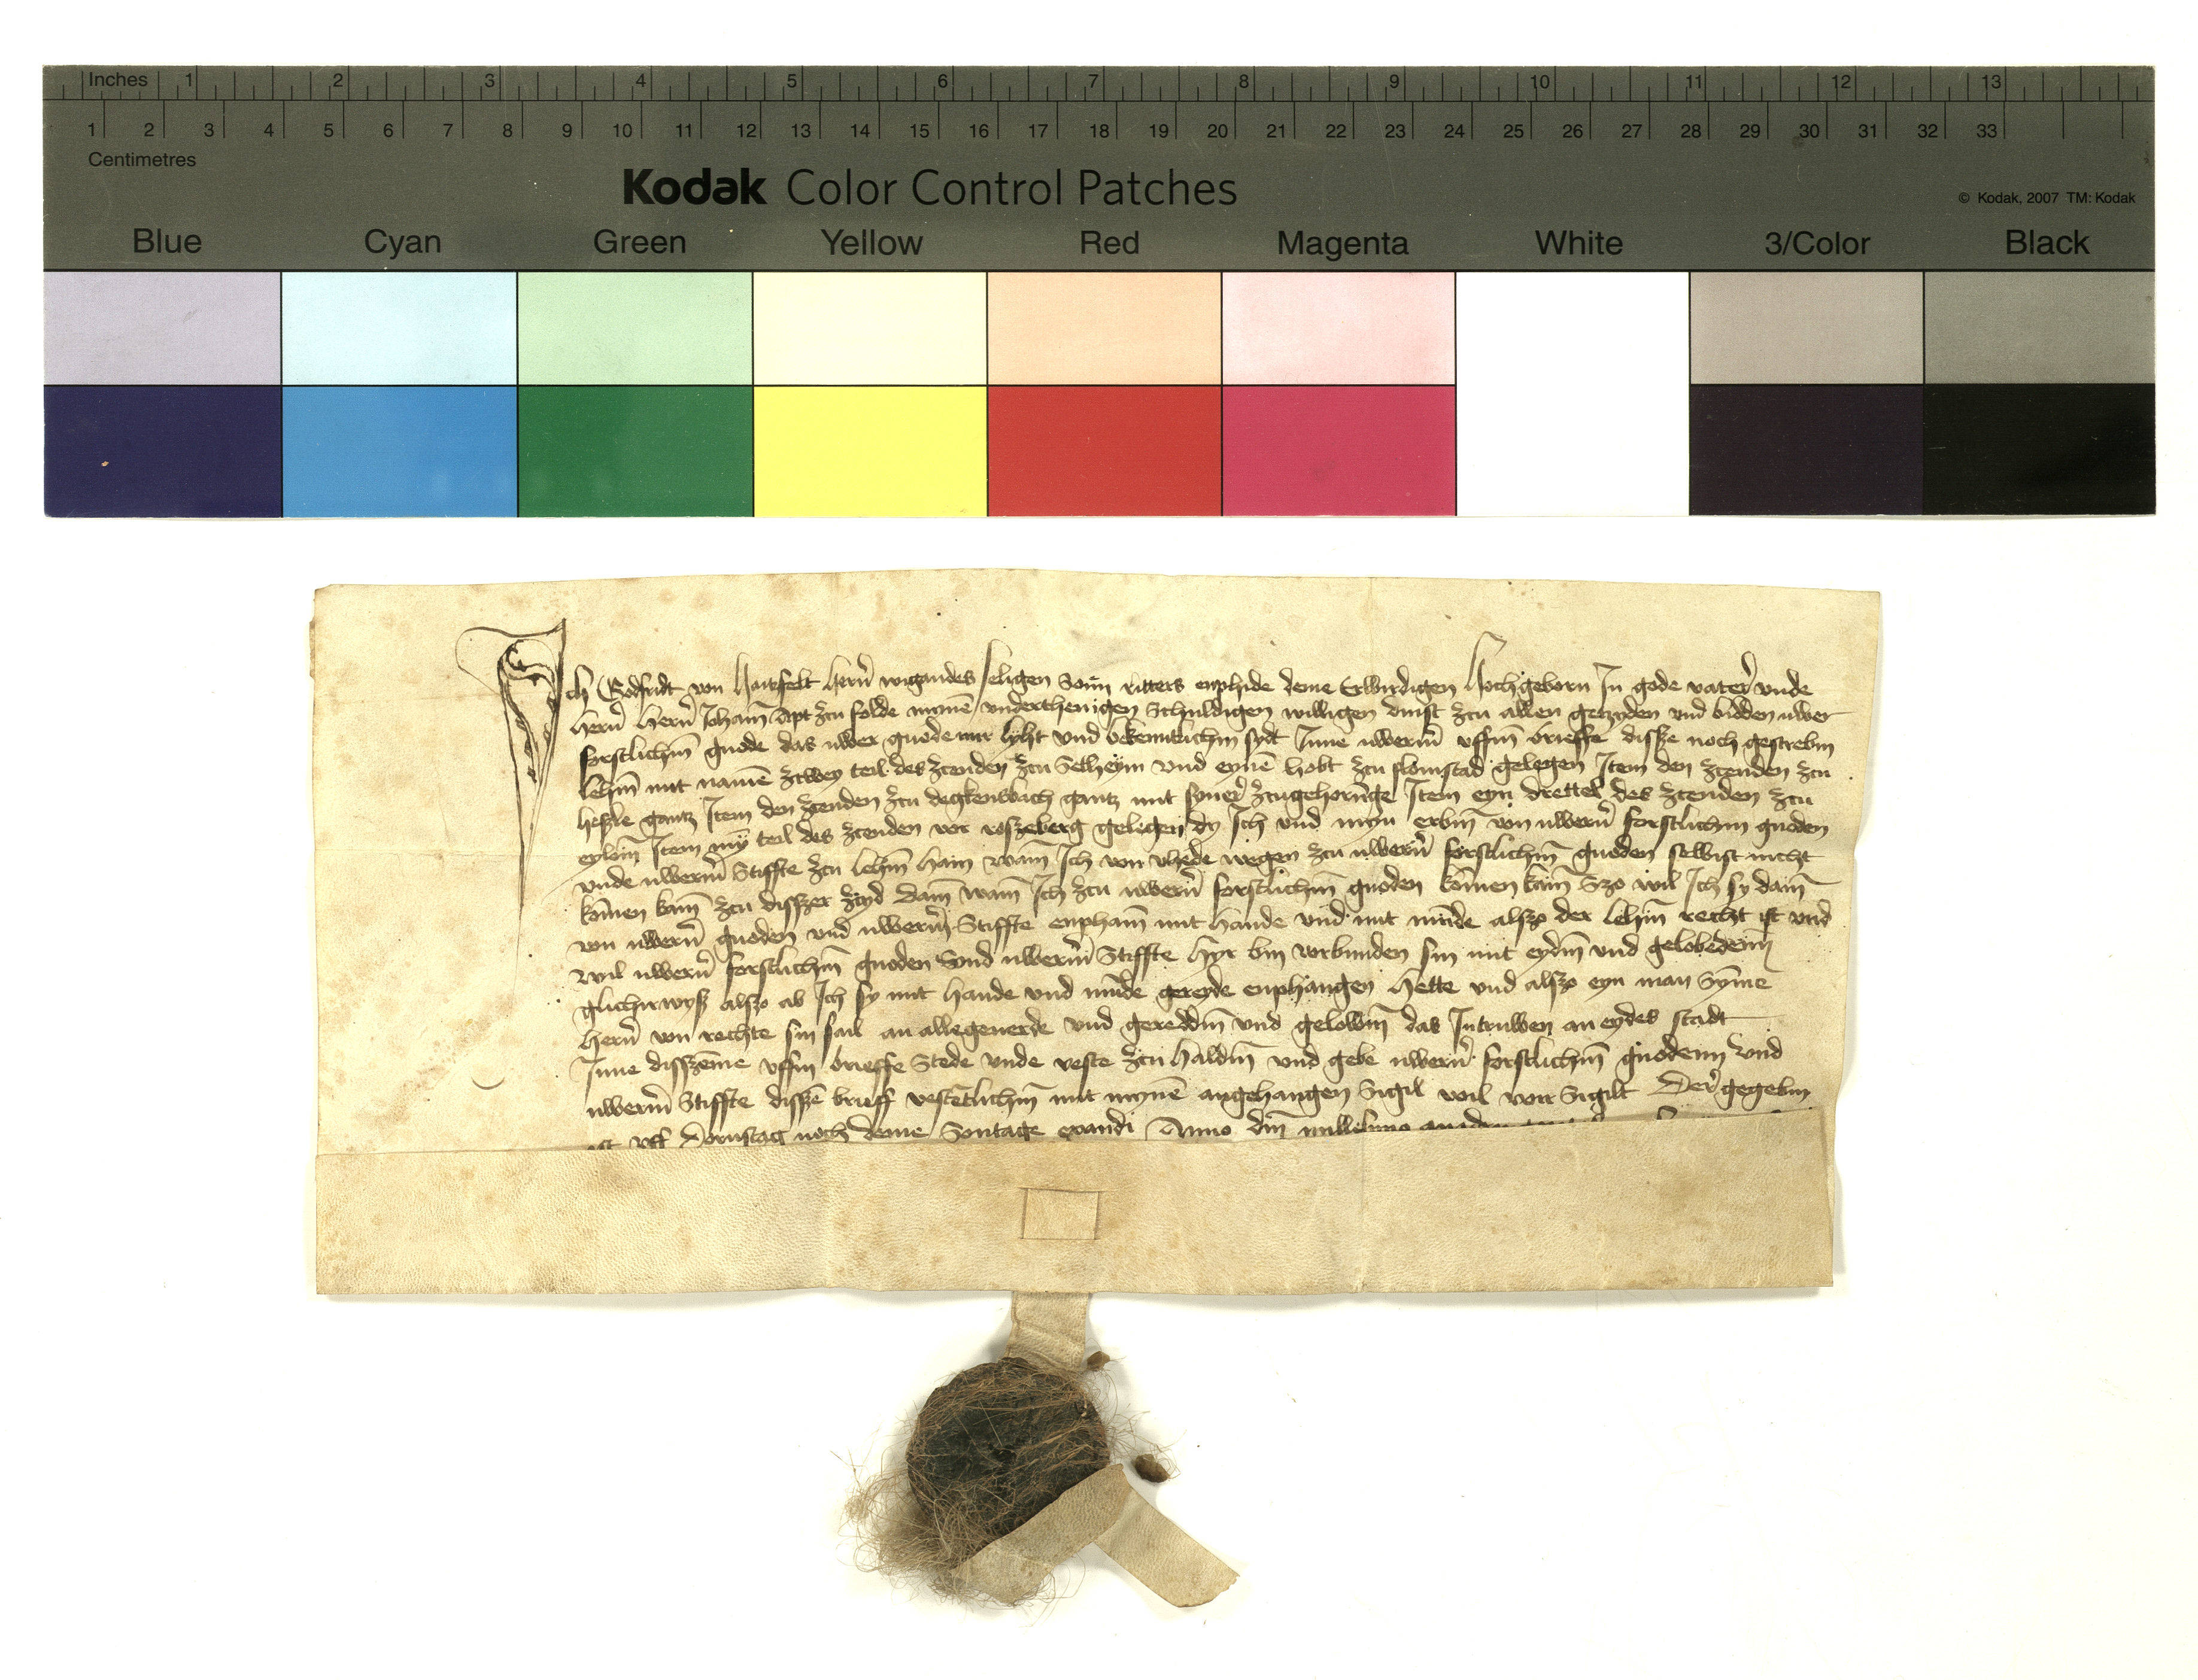 Inches 1 2 3 4 5 6 7 8 9 10 11 12 13
1 2 3 4 5 6 7 8 9 10 11 12 13 14 15 16 17 18 19 20 21 22 23 24 25 26 27 28 29 30 31 32 33
Centimetres
Kodak Color Control Patches
© Kodak, 2007 TM: Kodak
Blue Cyan Green Yellow Red Magenta White 3/Color Black
Ich Godfridt von Hatzfelt hern̄ wigandes seligen Son ritters enphide deme Erwirdigen Hochgeborn In gode vater vnde
hern̄ hern̄ Joham̄ Apt zcu folde mynē vnderthenigen Schuldigen willigen dinst zcu allen gezyden vnd bidden uwer
forstlichin̄ gnode das uwer gnode mir lyht vnd bekentlichin sydt Inne uwerm̄ uffin brieffe disße noch gescrebin
lehin̄ mit namē zcwey teil des zcenden zcu Selheym vnd eynē hobt zcu flomstad gelegen Item den zcenden zcu
heßle gantz Item den zcenden zcu deckenbach gantz mit syner zcugehorūge Item eyn drettel des zcenden zcu
eyloin̄ Item mȳ teil des zcenden vor roszeberg gelegen dy Ich vnd myn erbin̄ von uwern̄ forstlichin gnoden
vnde uwerm̄ Stiffte zcu lehin̄ hain wam̄ Ich von vhede wegen zcu uwern̄ forstlichin̄ gnoden selbist nicht
kōmen kam̄ zcu disszer zcyd dam̄ wam̄ Ich zcu uwern̄ forstlichin̄ gnoden kōmen kam̄ Szo wil Ich sy dam̄
von uwern̄ gnoden vnd uwerm̄ Stiffte enpham̄ mit hande vnd mit mūde alszo der lehin̄ recht ist vnd
wil uwern̄ forstlichin̄ gnoden vnd uwerm̄ Stiffte hyr bin vorbunden sin mit eydin̄ vnd gelobedenn̄
glicherwyß alszo ab Ich sy mit hande vnd mūde gereyde enphangen hette vnd alszo eyn man Syme
hern̄ von rechte sin sail an allegeuerde vnd gereddin̄ vnd gelowin̄ das Intruwen an eydes stadt
Inne disszeme uffin brieffe Stede vnde veste zcu haldin̄ vnd gebe uwern̄ forstlichin̄ gnodenn vnd
uwerm̄ Stiffte disßē brieff vestetlichin̄ mit mynē angehangen Sigil wol vor Sigilt Der gegebin
ist vff dornstag noch deme Sontage exaudi Anno dm̄ millesimo